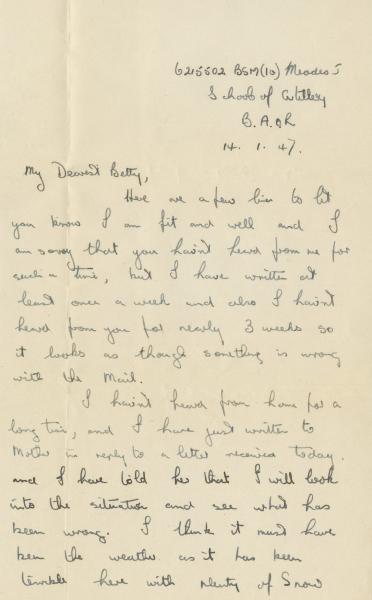 6215502 BSM(IG) Meades J
School of Artillery
B.A.O.R
14. 1. 47.
My Dearest Betty,
Here are a few lines to let
you know I am fit and well and I
am sorry that you havn't heard from me for
such a time, but I have written at
least once a week and also I havn't
heard from you for nearly 3 weeks so
it looks as though something is wrong
with the Mail.
I havn't heard from home for a
long time, and I have just written to
Mother in reply to a letter received today.
and I have told her that I will look
into the situation and see what has
been wrong. I think it must have
been the weather as it has been
terrible here with plenty of Snow